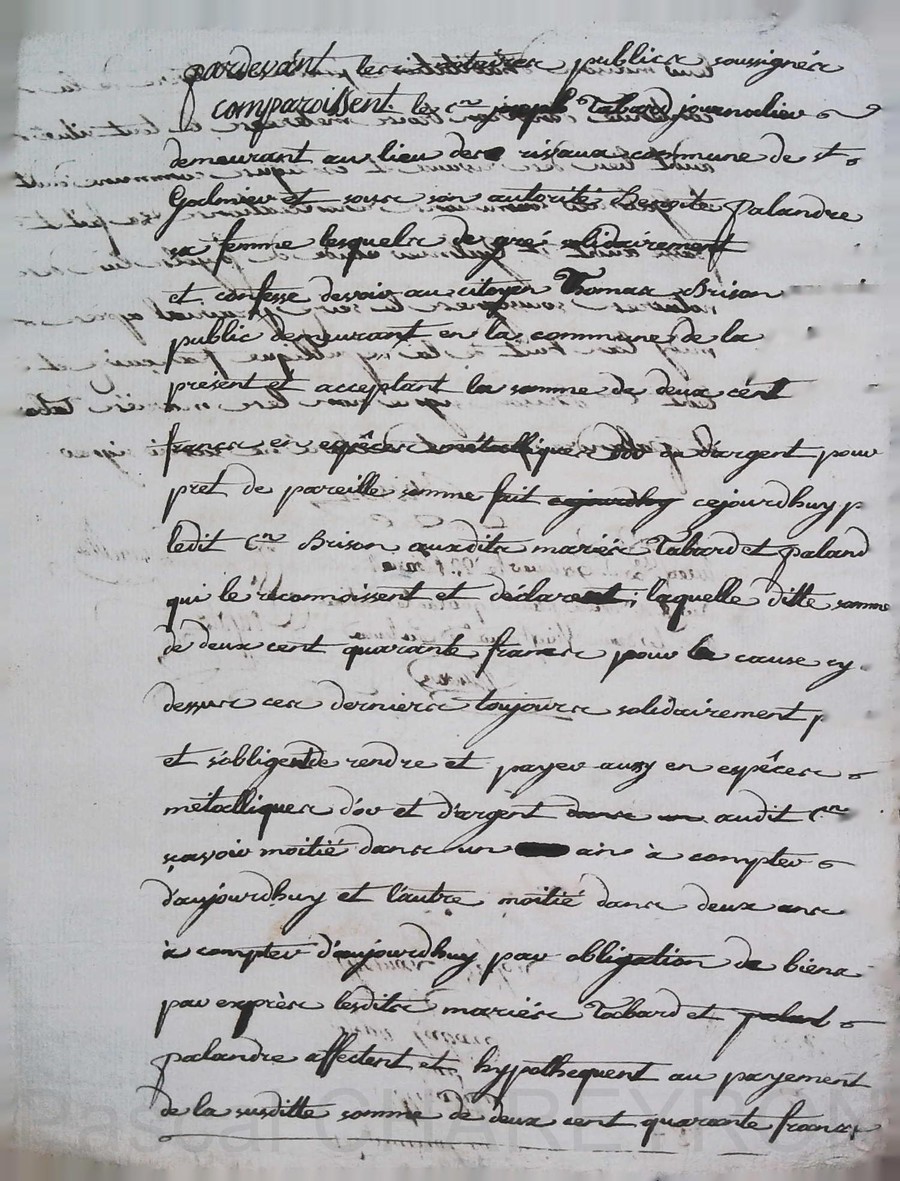 pardevant les notaires publics soussignés
comparoissent le cen joseph Tabard journalier
demeurant au lieu des rivaux commune de st
Galmier et sous son autorité Benoite palandre
sa femme lesquels de gré solidairement
et confesse devoir au citoyen Thomas Brison
public demeurant en la commune de la
présent et acceptant la somme de deux cent
francs en espêces métalliques d'or ou d'argent pour
pret de pareille somme fait cejourdhuy p
ledit Cen Brison auxdits mariés Tabard et paland
qui le reconnoissent et déclarent ; laquelle ditte somme
de deux cent quarante francs pour la cause cy
dessus ces derniers toujours solidairement p
et s'obligent de rendre et payer aussy en espêces
métalliques d'or et d'argent audit Cen
sçavoir moitié dans un an à compter
d'aujourdhuy et l'autre moitié dans deux ans
à compter d'aujourdhuy par obligation de biens
par exprès lesdits mariés Tabard et palant
palandre affectent et hypothequent au payement
de la susditte somme de deux cent quarante francs
Pascal CHAREYRON